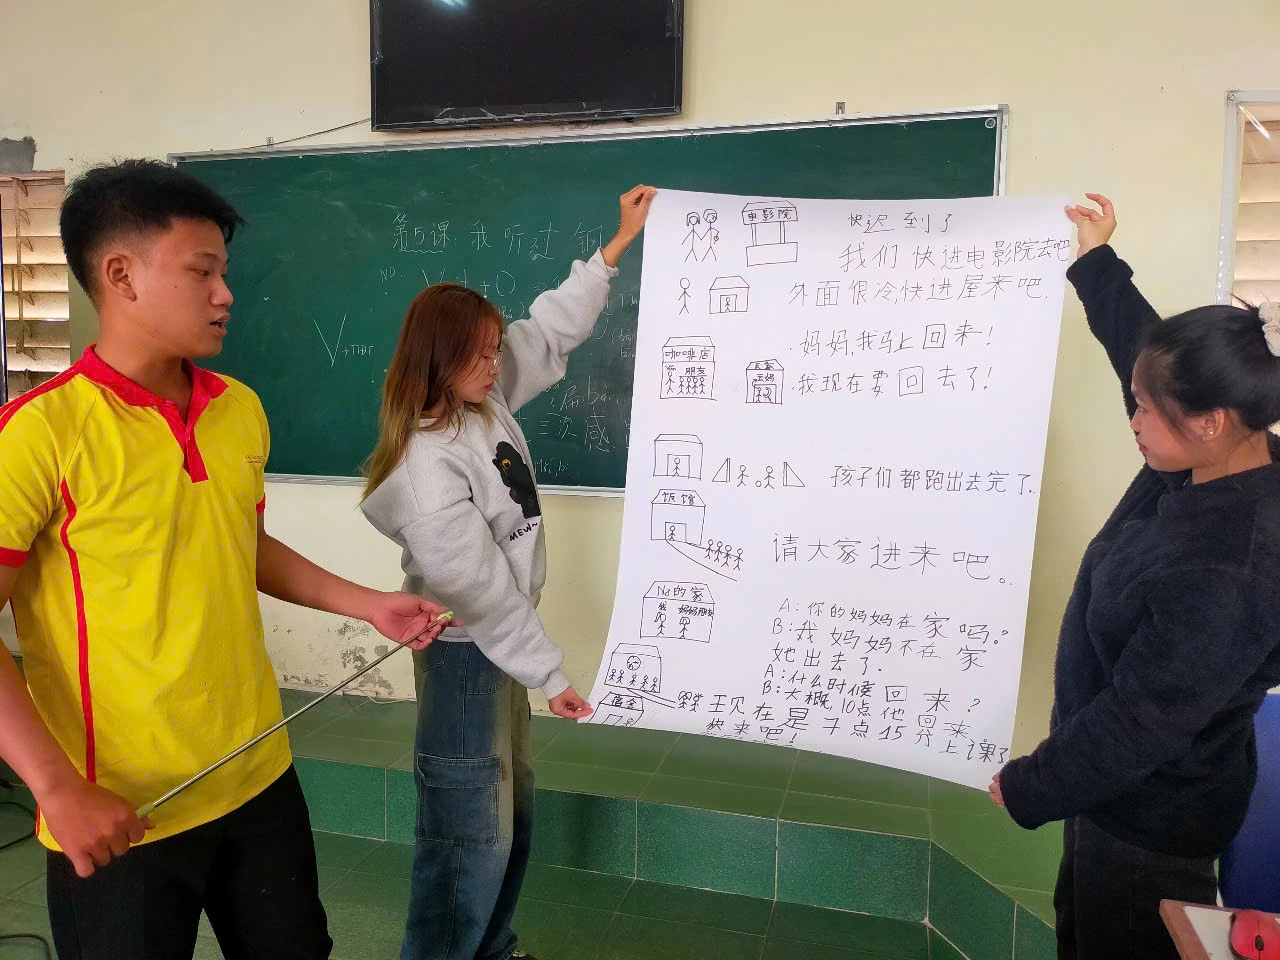 第5课: 我 听过 钢
ND:
V + TĐT
三次 感
MEW~
电影院
快迟 到了
我们 快进电影院去吧
外面 很冷,快进屋来吧.
咖啡店
朋友
.妈妈,我马上回来!
.我现在要回去了!
孩子们 都跑出去完了.
饭馆
请大家进来吧。
Na的家
我 妈妈朋友
A: 你的妈妈在家吗?
B: 我妈妈不在家
她出去了.
A: 什么时候回来?
B: 大概,10点他回来.
宿舍
现在是7点15分
快来吧! 上课了